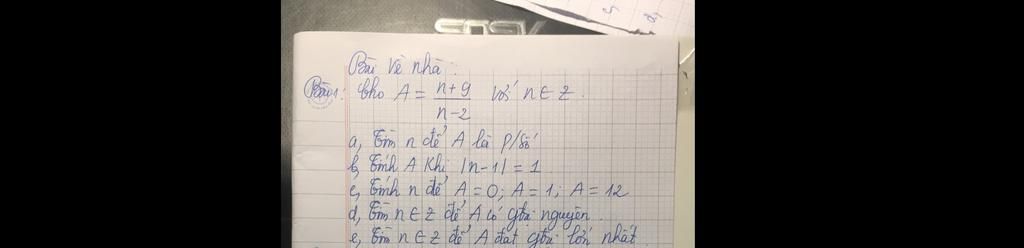 Bài về nhà:
Bài 1: Cho A = (n+9)/(n-2) với n ∈ Z.
a, Tìm n để A là p/số
b, Tính A khi |n-1| = 1
c, Tính n để A = 0; A = 1; A = 12
d, Tìm n ∈ Z để A có gtrị nguyên.
e, Tìm n ∈ Z để A đạt gtrị lớn nhất